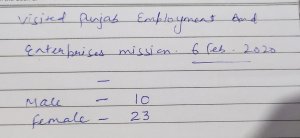 Visited Punjab Employment and
Enterprises mission. 6 Feb. 2020
–
Male – 10
female – 23